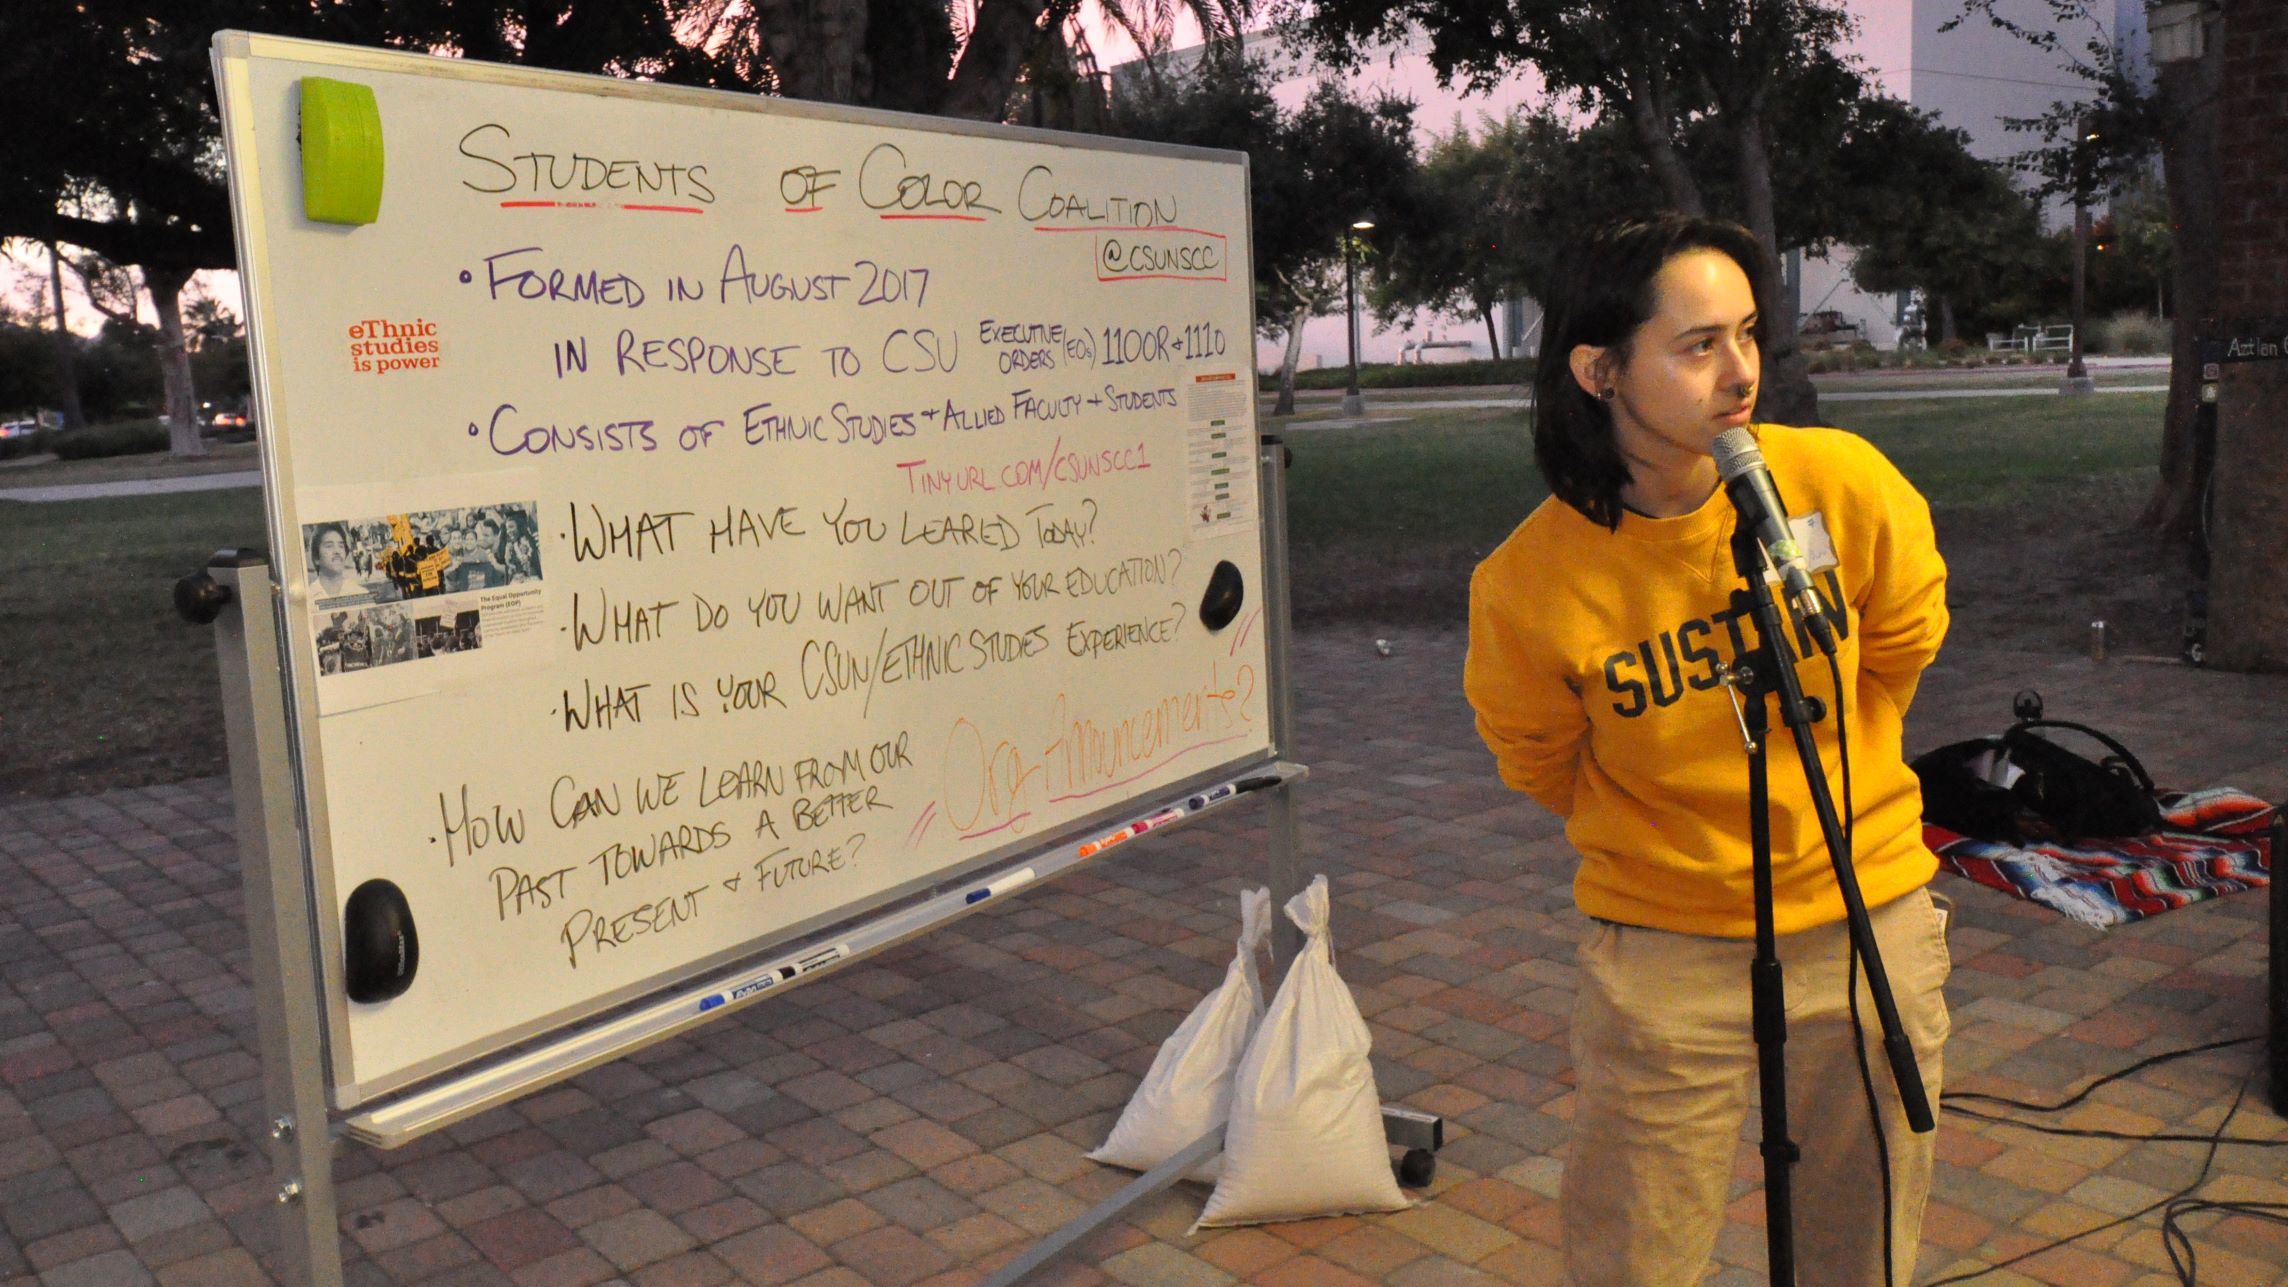 STUDENTS OF COLOR COALITION
@CSUNSCC
• FORMED IN AUGUST 2017
IN RESPONSE TO CSU EXECUTIVE ORDERS (EOs) 1100R + 1110
• CONSISTS OF ETHNIC STUDIES + ALLIED FACULTY + STUDENTS
TINYURL.COM/CSUNSCC1
eThnic
studies
is power
· WHAT HAVE YOU LEARED TODAY?
· WHAT DO YOU WANT OUT OF YOUR EDUCATION?
· WHAT IS YOUR CSUN/ETHNIC STUDIES EXPERIENCE?
· HOW CAN WE LEARN FROM OUR
PAST TOWARDS A BETTER
PRESENT + FUTURE?
" Org Announcements? "
The Equal Opportunity
Program (EOP)
SUSTAIN
Aztlan